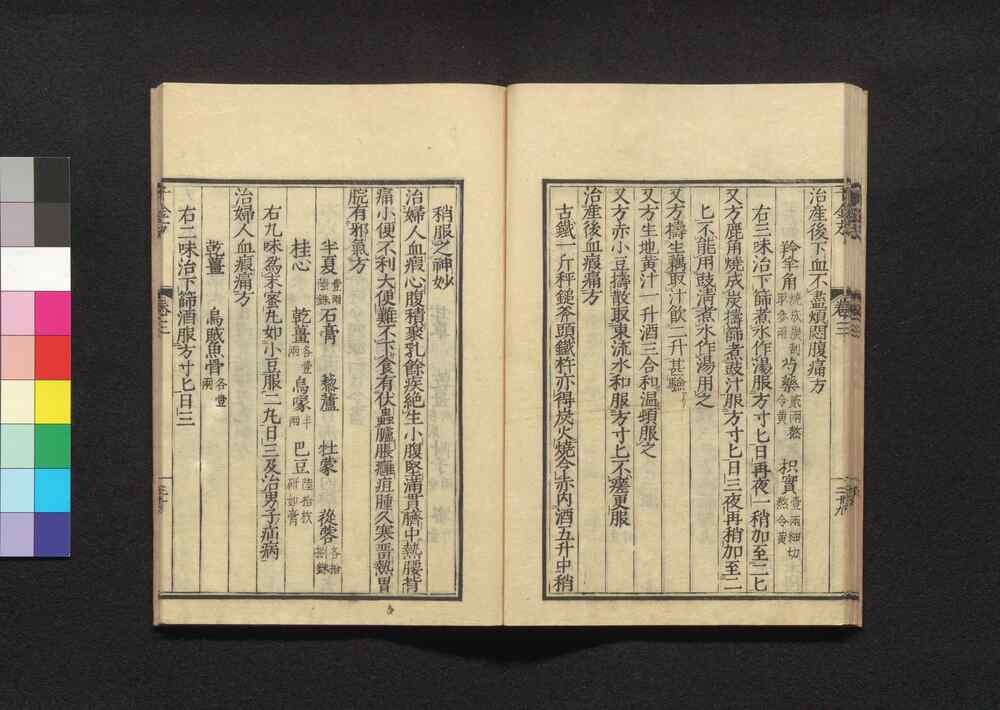 治產後下血不盡煩悶腹痛方
羚羊角燒成炭刮取叁兩 芍藥貳兩熬令黄 枳實壹兩細切熬令黄
右三味治下篩煮水作湯服方寸匕日再夜一稍加至二匕
又方鹿角燒成炭擣篩煮豉汁服方寸匕日三夜再稍加至二
匕不能用豉清煮水作湯用之
又方擣生藕取汁飲二升甚驗
又方生地黄汁一升酒三合和温頓服之
又方赤小豆擣散取東流水和服方寸匕不瘥更服
治產後血瘕痛方
古鐵一斤秤鎚斧頭鐵杵亦得炭火燒令赤内酒五升中稍
稍服之神妙
治婦人血瘕心腹積聚乳餘疾絶生小腹堅滿貫臍中熱腰背
痛小便不利大便難不下食有伏蟲臚脹癰疽腫久寒留熱胃
脘有邪氣方
半夏壹兩陸銖 石膏 藜蘆 牡蒙 蓯蓉各拾捌銖
桂心 乾薑各壹兩 烏喙半兩 巴豆陸拾枚研如膏
右九味爲末蜜丸如小豆服二丸日三及治男子疝病
治婦人血瘕痛方
乾薑 烏賊魚骨各壹兩
右二味治下篩酒服方寸匕日三
千金方
卷三